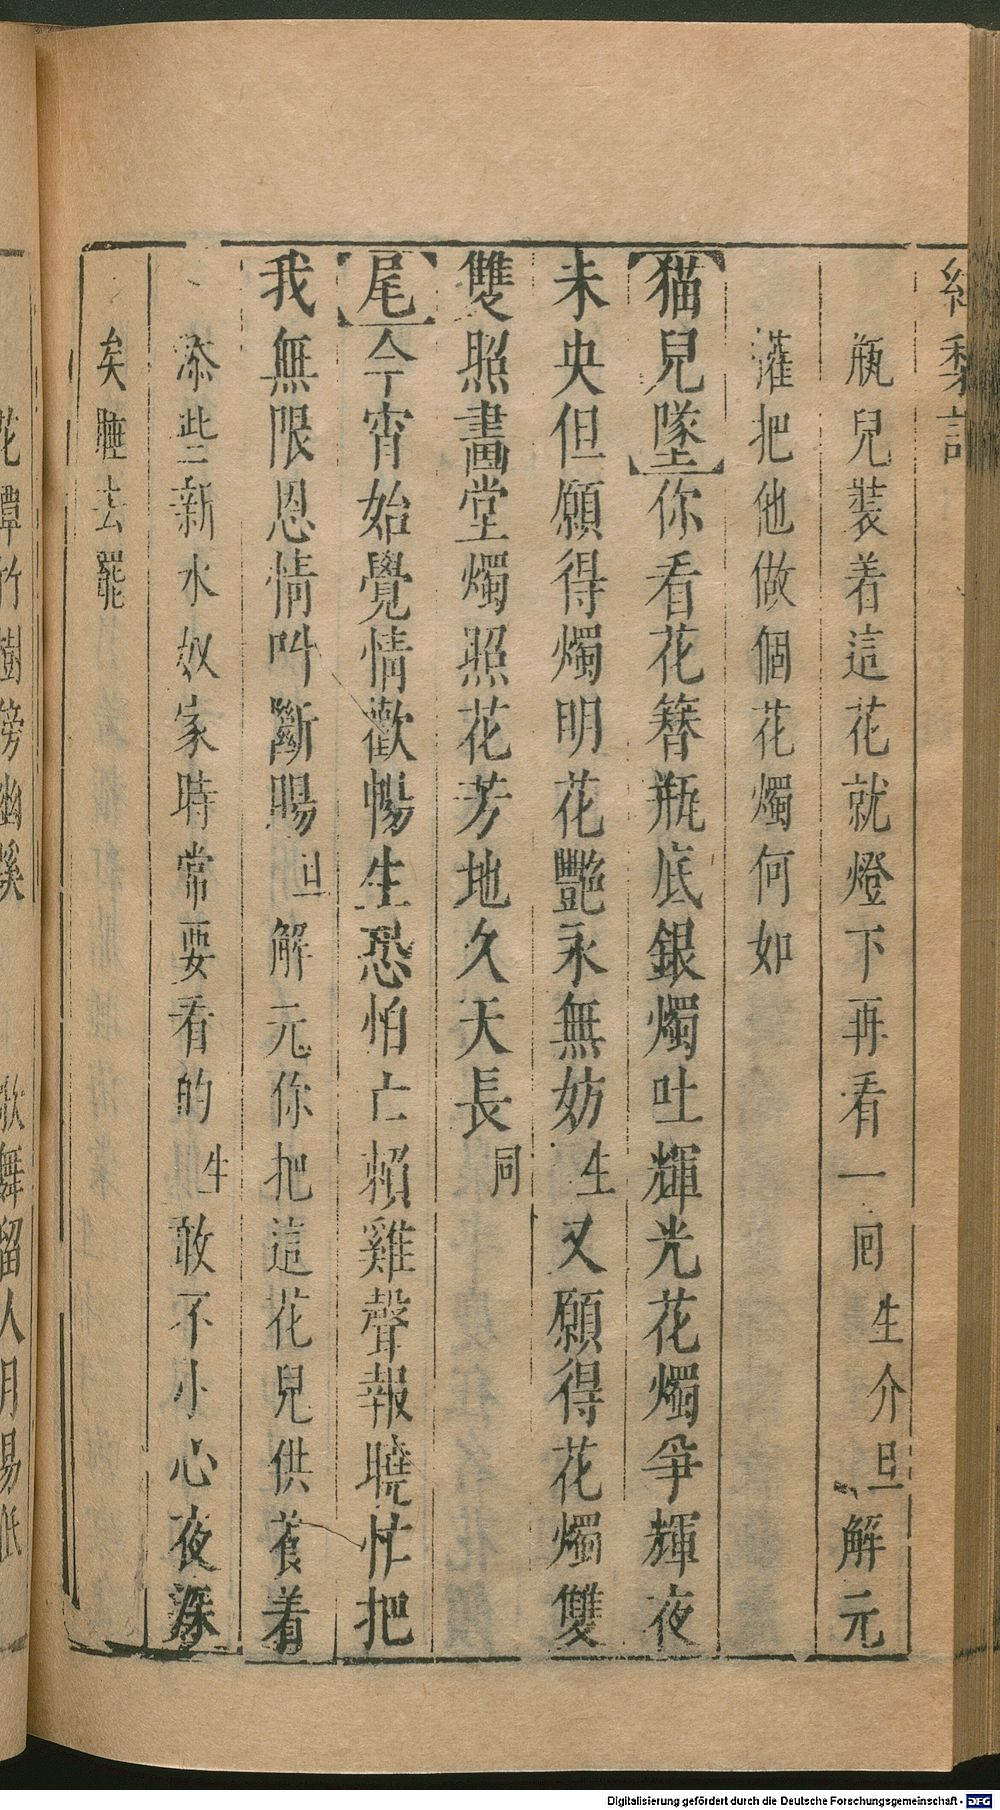 紅梨記
瓶兒裝着這花就燈下再看一回生介旦解元
灌把他做個花燭何如
【猫兒墜】你看花簪瓶底銀燭吐輝光花燭爭輝夜
未央但願得燭明花艷永無妨生又願得花燭雙
雙照畫堂燭照花芳地久天長同
【尾】今宵始覺情歡暢生恐怕亡賴雞聲報曉忙把
我無限恩情叫斷腸旦解元你把這花兒供養着
添些新水奴家時常要看的生敢不小心夜深
矣睡去罷
花潭竹樹傍幽溪 歌舞留人月易低
Digitalisierung gefördert durch die Deutsche Forschungsgemeinschaft - DFG